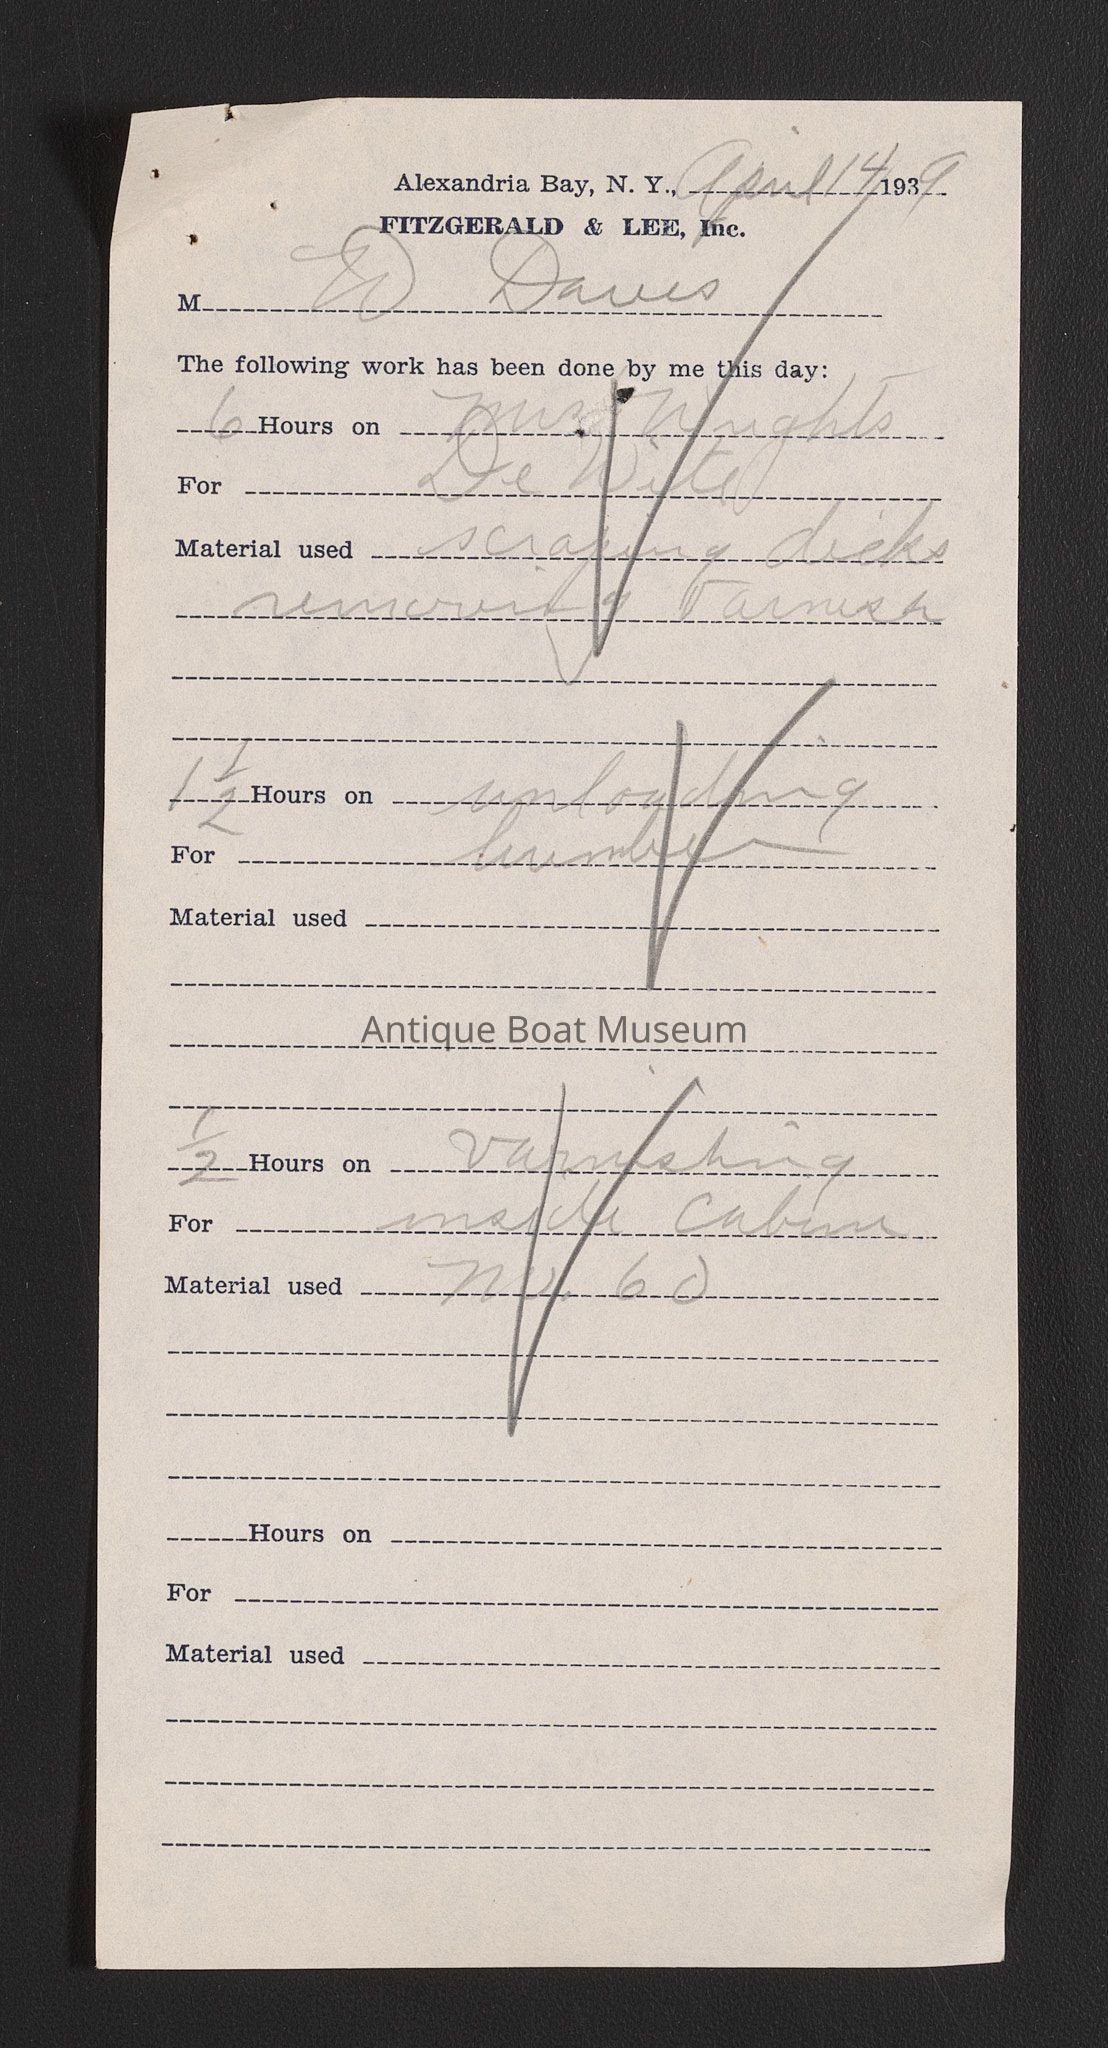 Alexandria Bay, N. Y., April 14 1939
FITZGERALD & LEE, Inc.
M Ed Daves
The following work has been done by me this day:
6 Hours on Mrs Wrights
For De Wite
Material used scraping dicks
removing varnish
1 1/2 Hours on unloading
For lumber
Material used
Antique Boat Museum
1/2 Hours on varnishing
For inside Cabin
Material used No. 60
Hours on
For
Material used